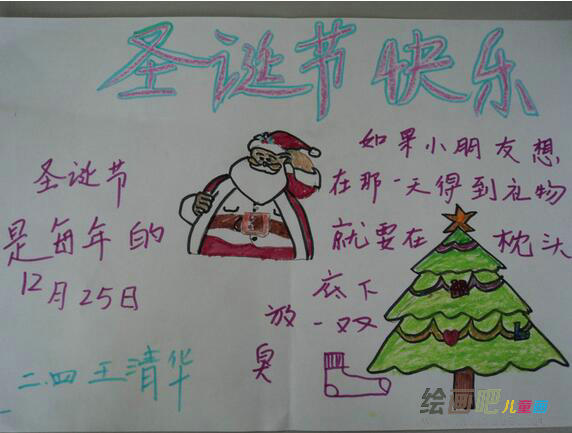 圣诞节快乐
圣诞节
是每年的
12月25日
如果小朋友想
在那一天得到礼物
就要在 枕头
底下
放一双
臭
二.四 王清华
绘画吧儿童画